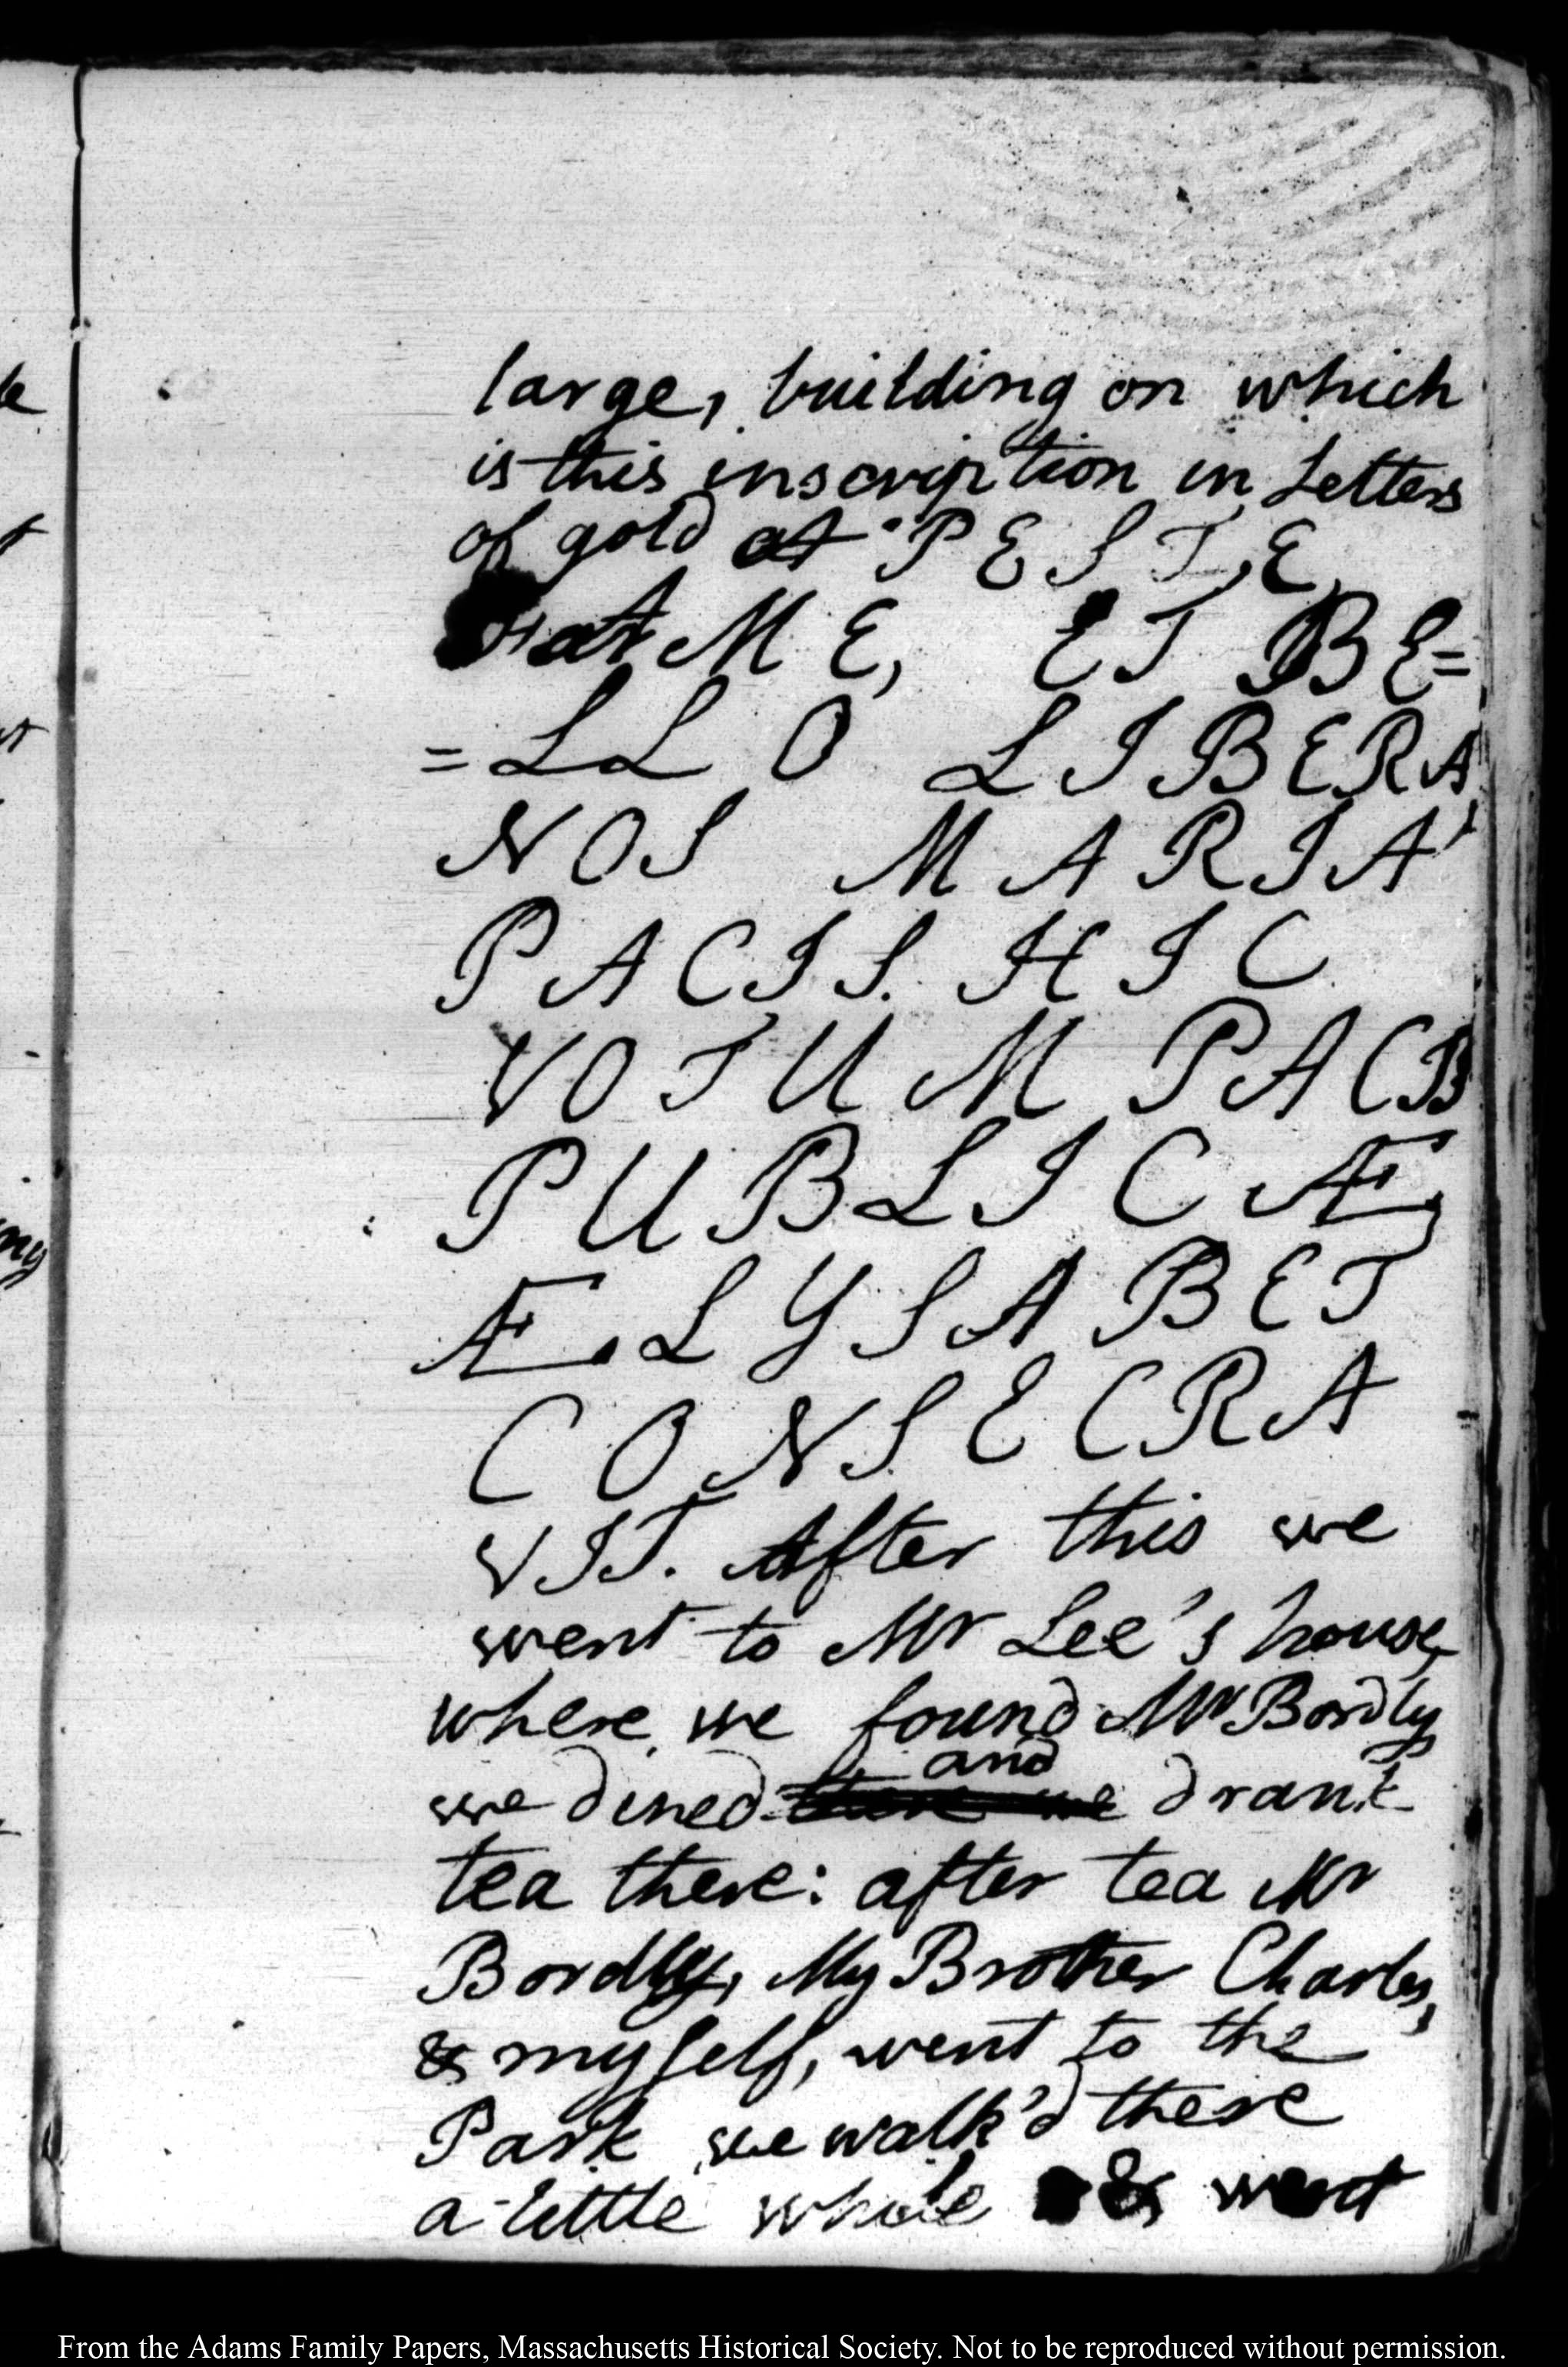 large, building on which
is this inscription in Letters
of gold at P E S T E,
at M E, E T B E=
=L L O L I B E R A,
N O S M A R I A
P A C I S. H I C
V O T U M P A C
P U B L I C Æ,
Æ. L Y S A B E T
C O N S E C R A
V I T. After this we
went to Mr Lee's house,
where we found Mr Bordly
we dined there we and drank
tea there: after tea Mr
Bordly, My Brother Charles,
& myself, went to the
Park we walk'd there
a little while & went
le
ng
From the Adams Family Papers, Massachusetts Historical Society. Not to be reproduced without permission.